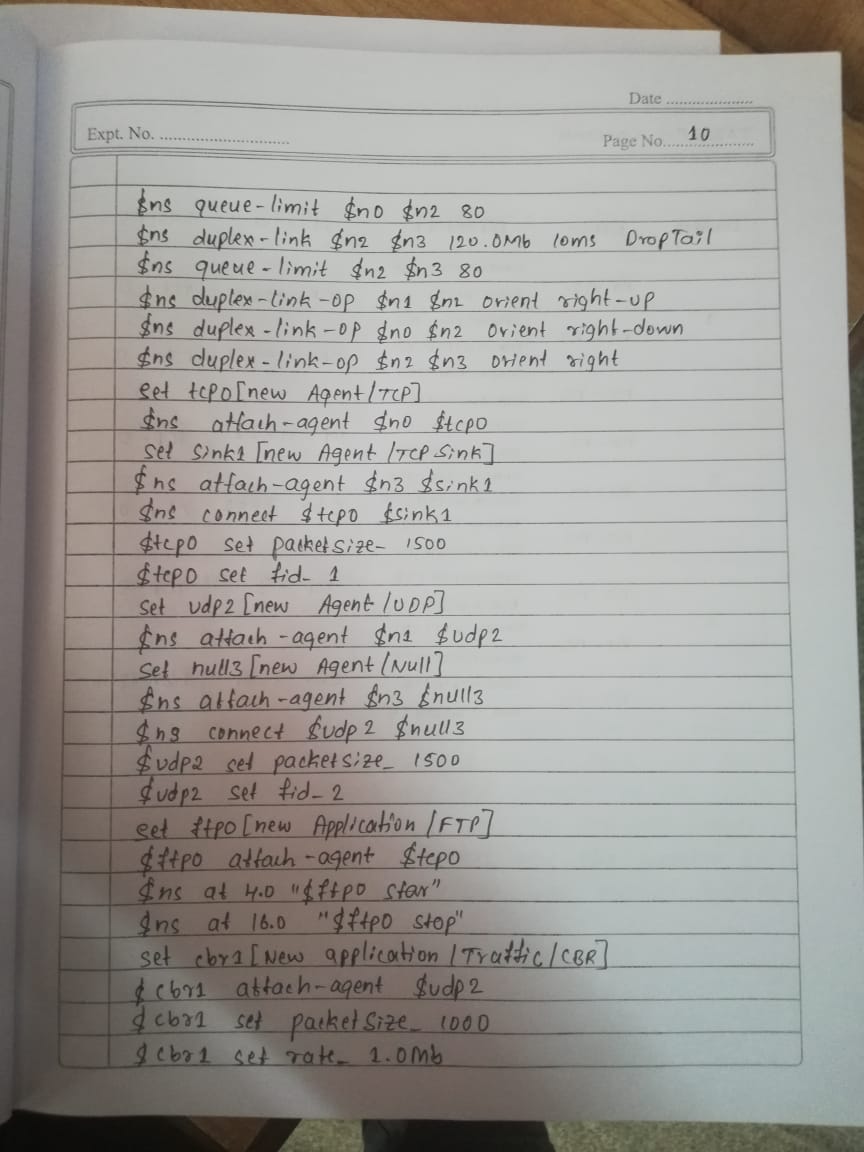 Date
Expt. No.
Page No. 10
$ns queue-limit $n0 $n2 80
$ns duplex-link $n2 $n3 120.0Mb 10ms DropTail
$ns queue-limit $n2 $n3 80
$ns duplex-link-op $n1 $n2 orient right-up
$ns duplex-link-op $n0 $n2 orient right-down
$ns duplex-link-op $n2 $n3 orient right
set tcp0[new Agent/TCP]
$ns attach-agent $n0 $tcp0
set sink1 [new Agent /TCP Sink]
$ns attach-agent $n3 $sink1
$ns connect $tcp0 $sink1
$tcp0 set packetsize- 1500
$tcp0 set fid- 1
set udp2 [new Agent /UDP]
$ns attach-agent $n1 $udp2
set null3 [new Agent /Null]
$ns attach-agent $n3 $null3
$ns connect $udp2 $null3
$udp2 set packetsize_ 1500
$udp2 set fid-2
set ftp0 [new Application /FTP]
$ftp0 attach-agent $tcp0
$ns at 4.0 "$ftp0 star"
$ns at 16.0 "$ftp0 stop"
set cbr1 [New application /Traffic/CBR]
$cbr1 attach-agent $udp2
$cbr1 set packetSize_ 1000
$cbr1 set rate_ 1.0Mb